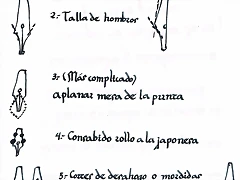 2- Talla de hombros
3- (Más complicado)
aplanar mesa de la punta
4- Consabido rollo a la japonesa
5- Cortes de debajo o mordidas